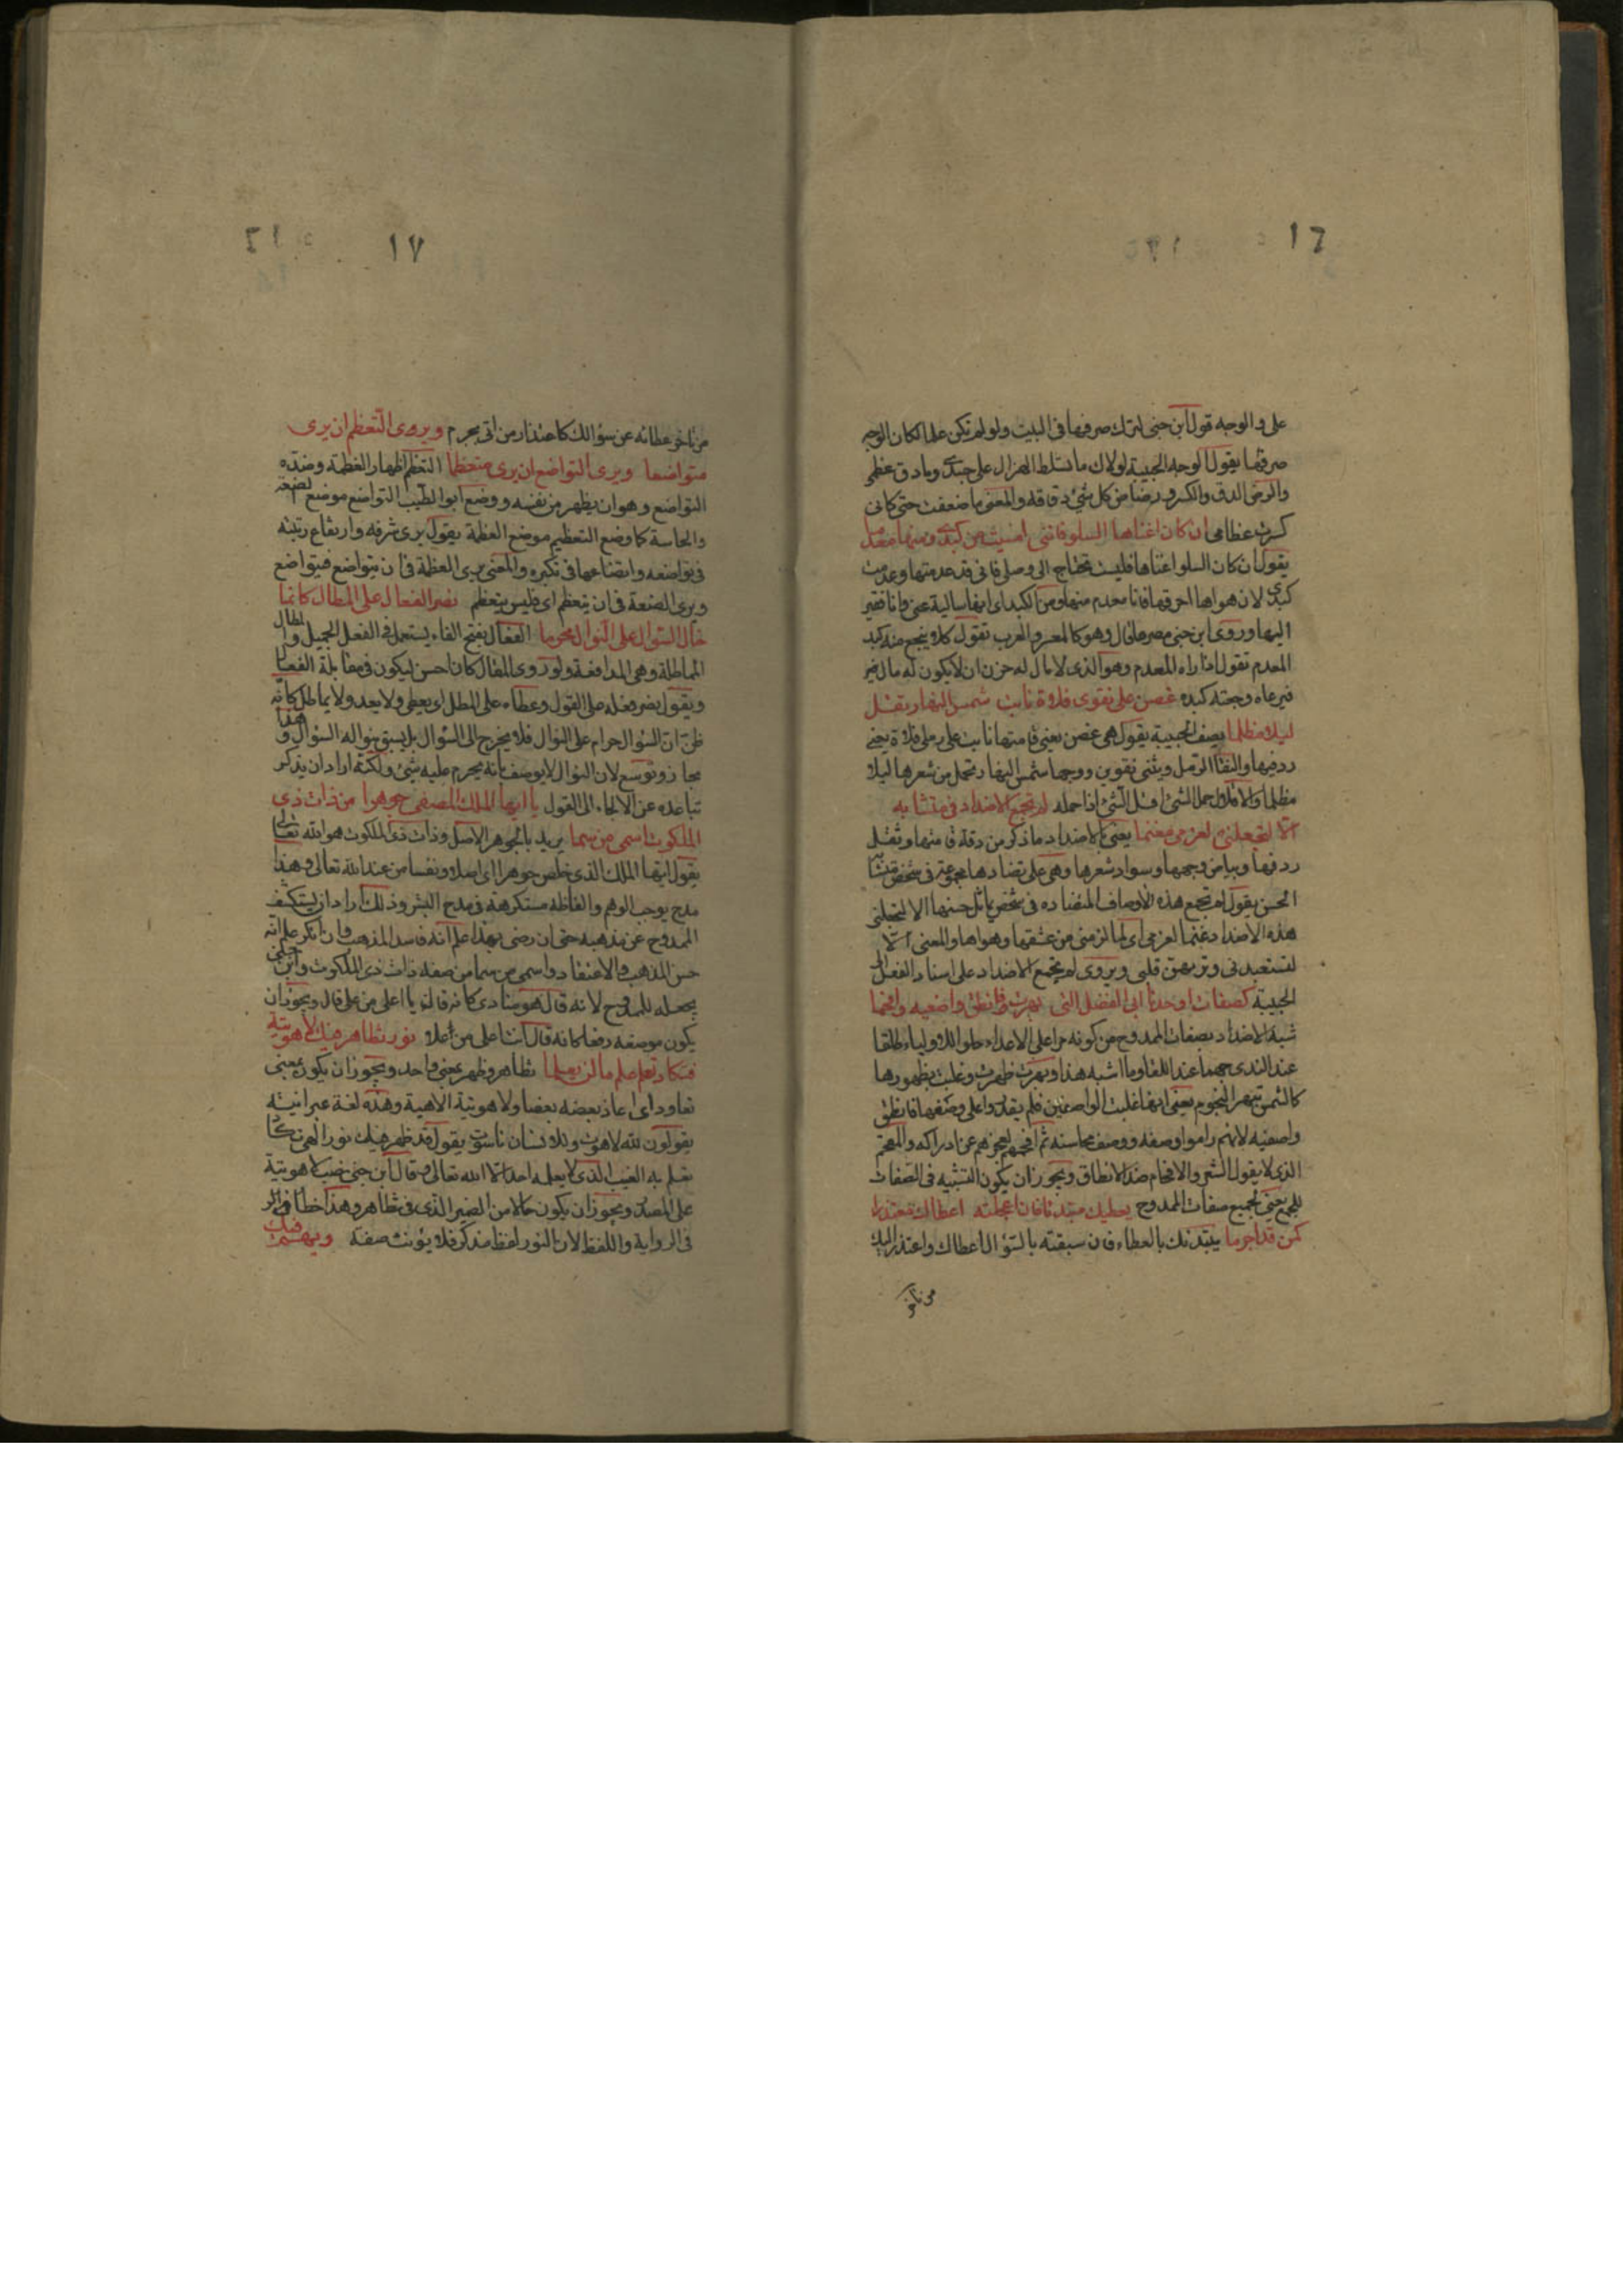 ١٦
على والوجه قول ابن جنى لترك صرفها فى البيت ولو لم تكن علما لكان الوجه
صرفها يقول لوجه الحبيبة لولاك ما تسلط الهزال على جسدى وما دق عظمى
والرض الدق والكسر ورضاض كل شئ دقاقه والمعنى ما ضعفت حتى كانى
كسرت عظامى ان كان اغناها السلو فاننى امسيت من كبدى ومنها معدما
يقول ان كان السلو اغناها فليست تحتاج الى وصلى فانى قد عدمتها وعدمت
كبدى لان هواها احرقها فانا معدم منها ومن الكبد اى انها سالية عنى وانا فقير
اليها وروى ابن جنى مصرما قال وهو كالمعسر والعرب تقول كلاء ينجع منه كبد
المعدم تقول اذا راه المعدم وهو الذى لا مال له حزن ان لا يكون له مال غير
فيرعاه وجعته كبده غصن على نقوى فلاة نابت شمس النهار تقل
ليلا مظلما يصف الحبيبة يقول هى غصن يعنى قامتها نابت على رملى فلاة يعنى
ردفيها والنقا الرمل ويثنى نقوين ووجهها شمس النهار تحمل من شعرها ليلا
مظلما والاقلال حمل الشئ اقل الشئ اذا حمله لم تجمع الاضداد فى متشابه
الا لتجعلنى لغرمى مغنما يعنى بالاضداد ما ذكر من دقة قامتها وثقل
ردفها وبياض وجهها وسواد شعرها وهى على تضادها مجموعة فى شخص متشابه
الحسن يقول لم تجمع هذه الاوصاف المتضاده فى شخص يماثل حسنها الا لتجعلنى
هذه الاضداد غنما لغرمى اى لما لزمنى من عشقها وهواها والمعنى الا
لتستعبدنى وترتهن قلبى ويروى لم يجمع الاضداد على اسناد الفعل الى
الحبيبة كصفات اوحدنا ابى الفضل التى بهرت فانطق واصفيه وافحما
شبه الاضداد بصفات الممدوح من كونه مرا على الاعداء حلوا للاولياء طلقا
عند الندى جهما عند اللقا وما اشبه هذا وبهرت ظهرت وغلبت بظهورها
كالشمس تبهر النجوم يعنى انها غلبت الواصفين فلم يقدروا على وصفها فانطق
واصفيه لانهم راموا وصفه ووصف محاسنه ثم افحمهم لعجزهم عن ادراكه والمفحم
الذى لا يقول الشعر والافحام ضد الانطاق ويجوز ان يكون التشبيه فى الصفات
للجمع يعنى لجميع صفات الممدوح يعطيك مبتدئا فان اعجلته اعطاك معتذرا
كمن قد اجرما يبتدئك بالعطاء فان سبقته بالسؤال اعطاك واعتذر اليك
من تاخر
١٧
من تاخر عطائه عن سؤالك كاعتذار من اتى بجرم ويرى التعظم ان يرى
متواضعا ويرى التواضع ان يرى متعظما التعظم اظهار العظمة وضده
التواضع وهو ان يظهر من نفسه ووضع ابو الطيب التواضع موضع الضعة
والخاسة كما وضع التعظيم موضع العظمة يقول يرى شرفه وارتفاع رتبته
فى تواضعه واتضاعها فى تكبره والمعنى يرى العظمة فى ان يتواضع فيتواضع
ويرى الضعة فى ان يتعظم اى فليس يتعظم نصر الفعال على المطال كانما
خال السؤال على النوال محرما الفعال بفتح الفاء يستعمل فى الفعل الجميل والمطال
المماطلة وهى المدافعة ولو روى المقال كان احسن ليكون فى مقابلة الفعال
ويقول نصر فعله على القول وعطاءه على المطل اى يعطى ولا يعد ولا يماطل كانه
ظن ان السؤال حرام على النوال فلا يحوج الى السؤال بل يسبق بنواله السؤال وهذا
مجاز وتوسع لان النوال لا يوصف بانه يحرم عليه شئ ولكنه اراد ان يذكر
تباعده عن الالجاء الى القول يا ايها الملك المصفى جوهرا من ذات ذى
الملكوت اسمى من سما يريد بالجوهر الاصل وذات ذى الملكوت هو الله تعالى
يقول ايها الملك الذى خلص جوهرا اى اصلا ونفسا من عند الله تعالى وهذا
مدح يوجب الوهم والفاظه مستكرهة فى مدح البشر وذلك اراد ان يستكشف
الممدوح عن مذهبه حتى ان رضى بهذا علم انه فاسد المذهب وان انكر علم انه
حسن المذهب والاعتقاد واسمى من سما من صفة ذات ذى الملكوت وابن جنى
يجعله للممدوح لانه قال هو منادى كانه قال يا اعلى من على قال ويجوز ان
يكون موضعه رفعا كانه قال انت اعلى من علا نور تظاهر فيك لاهوتية
فتكاد تعلم علم ما لن يعلما تظاهر وظهر بمعنى واحد ويجوز ان يكون بمعنى
تعاود اى اعاذ بعضه بعضا ولاهوتية الاهية وهذه لغة عبرانية
يقولون لله لاهوت وللانسان ناسوت يقول قد ظهر فيك نور الهى تكاد
تعلم به الغيب الذى لا يعلمه احد الا الله تعالى وقال ابن جنى نصب لاهوتية
على المصدر ويجوز ان يكون حالا من الضمير الذى فى تظاهر وهذا خطا
فى الرواية واللفظ لان النور لفظ مذكر فلا يؤنث صفته ويهم فيك